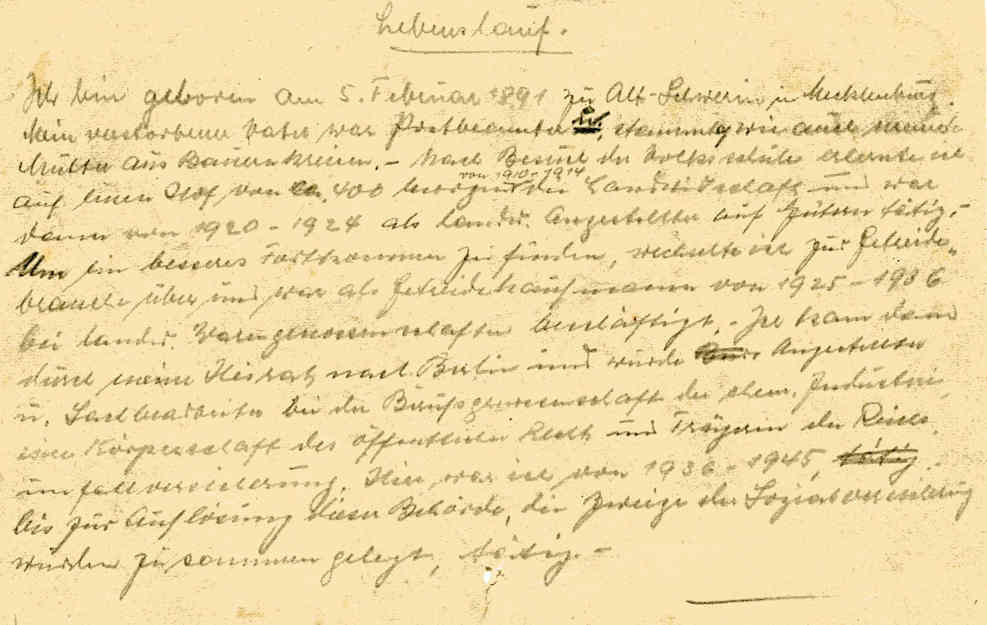 Lebenslauf.
Ich bin geboren am 5. Februar 1891 zu Alt-Schwerin in Mecklenburg.
Mein verstorbener Vater war Postbeamter, stammte wie auch meine
Mutter aus Bauernkreisen. – Nach Besuch der Volksschule erlernte ich
von 1910-1914
auf einen Hof von ca. 400 Morgen die Landwirtschaft und war
dann von 1920 - 1924 als landw. Angestellter auf Gütern tätig. –
Um ein besseres Fortkommen zu finden, wechselte ich zur Getreide-
branche über und war als Getreidekaufmann von 1925 - 1936
bei landw. Warengenossenschaften beschäftigt. – Ich kam dann
durch meine Heirat nach Berlin und wurde Angestellter
u. Sachbearbeiter bei der Berufsgenossenschaft der chem. Industrie,
einer Körperschaft des öffentlichen Rechts und Trägerin der Reichs
unfallversicherung. Hier war ich von 1936 - 1945, tätig
bis zur Auflösung dieser Behörde, die Zweige der Sozialversicherung
wurden zusammen gelegt, tätig. –